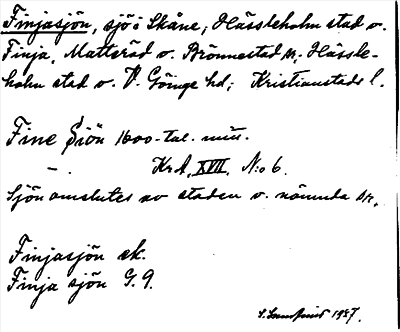 Finjasjön, sjö i Skåne, Hässleholm stad o.
Finja, Matteröd o. Brönnestad sn, Hässle-
holm stad o. V. Göinge hd, Kristianstads l.
Fine Siön 1600-tal.
– . KrA, XVII, N:o 6.
Sjön omslutes av staden o. nämnda sn.
Finjasjön ek.
Finja sjön G. 9.
1927.